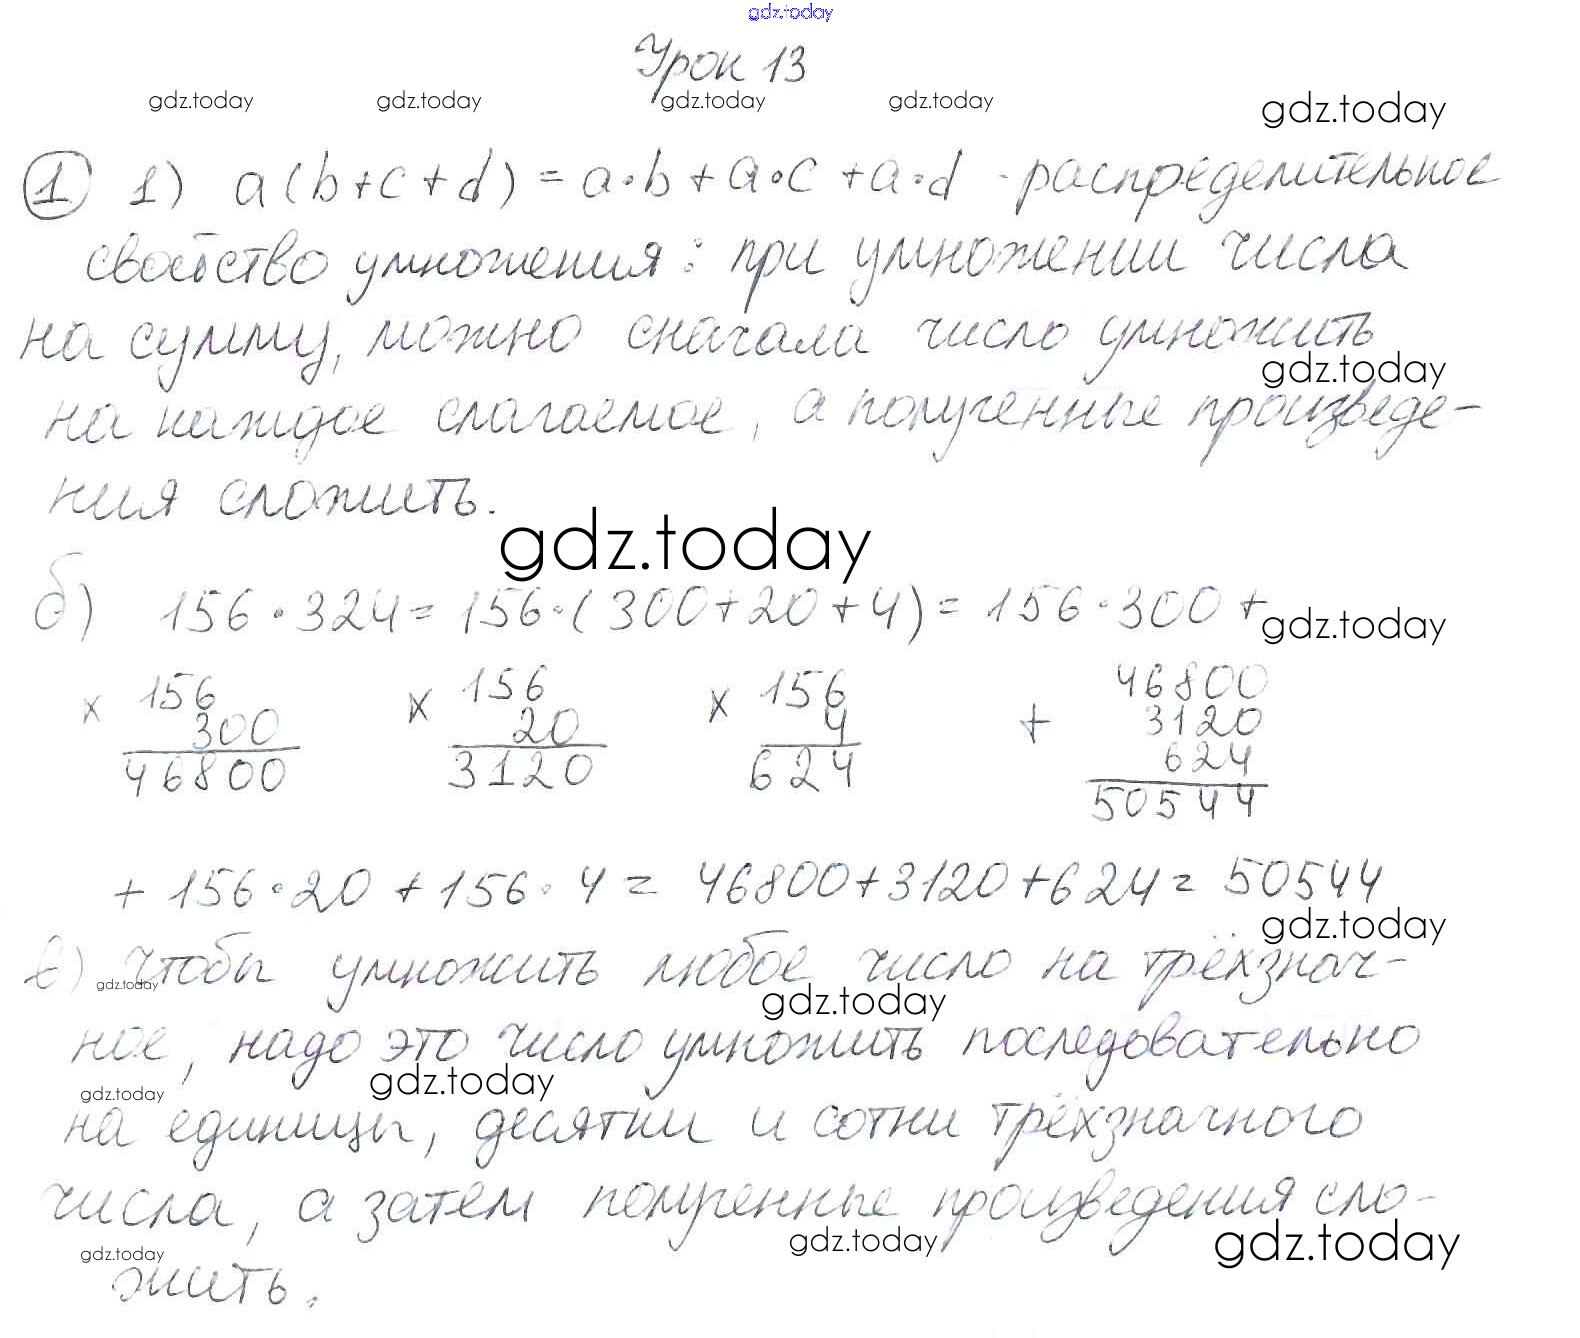 gdz.today
Урок 13
gdz.today gdz.today gdz.today gdz.today gdz.today
1 1) a(b+c+d) = a·b+a·c+a·d - распределительное
свойство умножения: при умножении числа
на сумму, можно сначала число умножить
gdz.today
на каждое слагаемое, а полученные произведе-
ния сложить.
gdz.today
б) 156·324=156·(300+20+4)=156·300+
gdz.today
× 156 × 156 × 156 46800
300 20 4 + 3120
46800 3120 624 624
50544
+156·20+156·4=46800+3120+624=50544
gdz.today
в) Чтобы умножить любое число на трёхзнач-
gdz.today gdz.today
ное, надо это число умножить последовательно
gdz.today gdz.today
на единицы, десятки и сотни трёхзначного
числа, а затем полученные произведения сло-
gdz.today gdz.today gdz.today
жить.